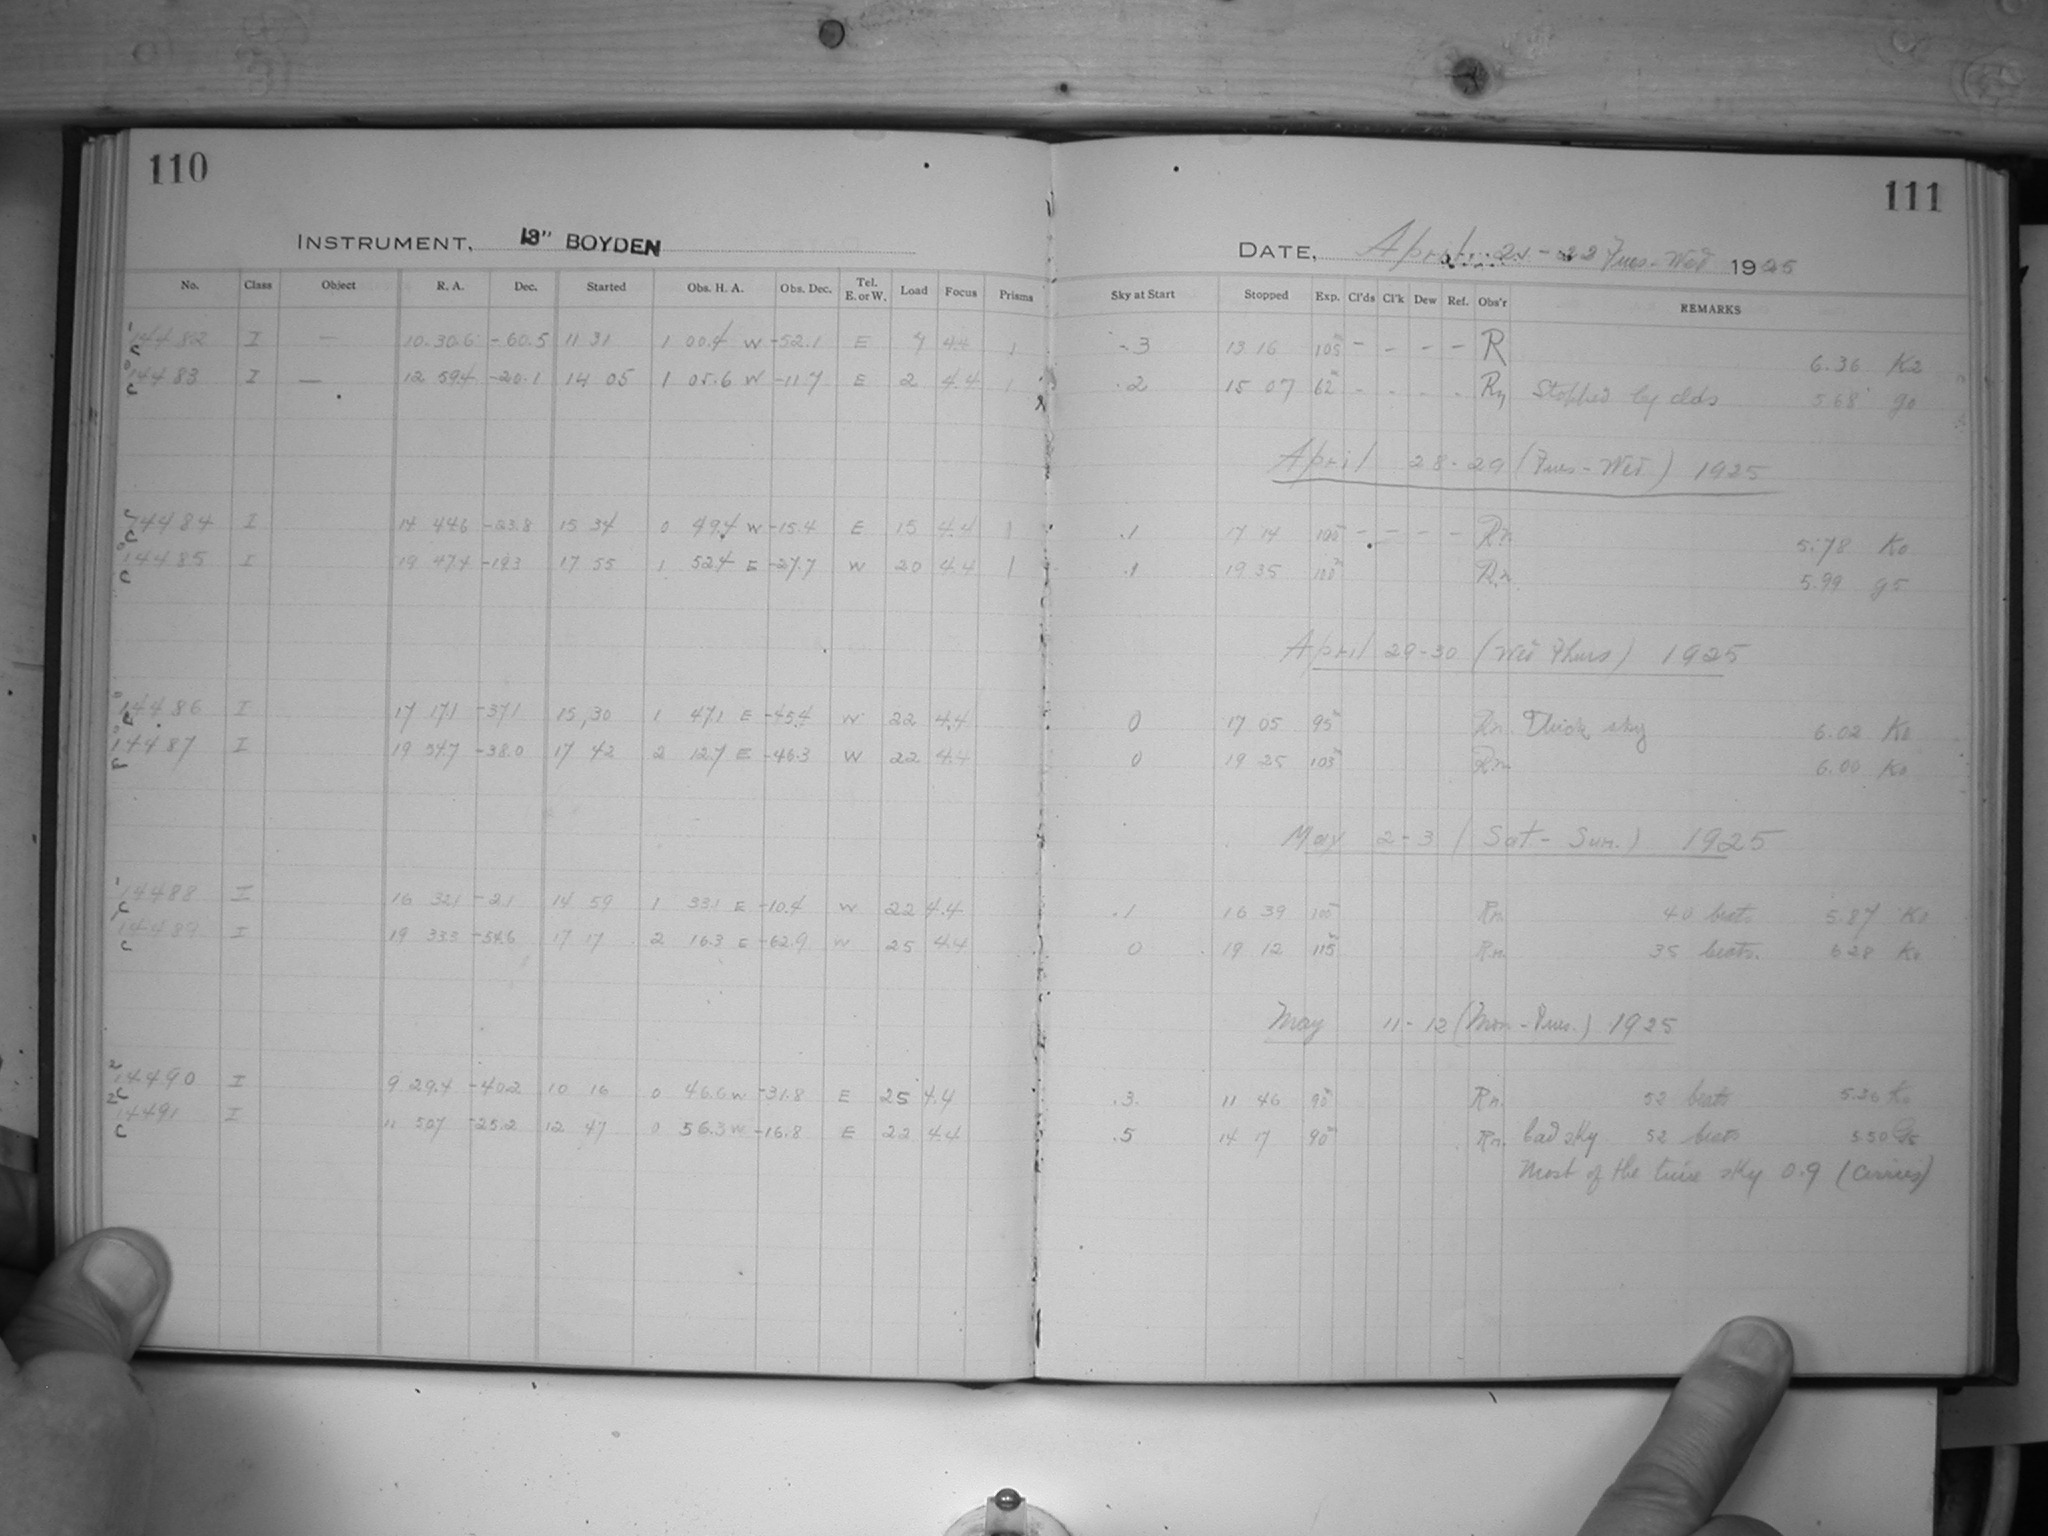 110
INSTRUMENT, 13" BOYDEN
No. Class Object R. A. Dec. Started Obs. H. A. Obs. Dec. Tel. E. or W. Load Focus Prisms
14482 I — 10 30.6 -60.5 11 31 1 00.4 W -52.1 E 7 4.4 1
14483 I — 12 59.4 -20.1 14 05 1 05.6 W -11.7 E 2 4.4 1
14484 I 14 44.6 -23.8 15 34 0 49.4 W -15.4 E 15 4.4 1
14485 I 19 47.4 -19.3 17 55 1 52.4 E -27.7 W 20 4.4 1
14486 I 17 17.1 -37.1 15,30 1 47.1 E -45.4 W 22 4.4
14487 I 19 54.7 -38.0 17 42 2 12.7 E -46.3 W 22 4.4
14488 I 16 32.1 -2.1 14 59 1 33.1 E -10.4 W 22 4.4
14489 I 19 33.3 -54.6 17 17 2 16.3 E -62.9 W 25 4.4
14490 I 9 29.4 -40.2 10 16 0 46.6 W -31.8 E 25 4.4
14491 I 11 50.7 -25.2 12 47 0 56.3 W -16.8 E 22 4.4
111
DATE, April 21-22 Tues-Wed 1925
Sky at Start Stopped Exp. Cl'ds Cl'k Dew Ref. Obs'r REMARKS
.3 13 16 105m - - - - R 6.36 K2
.2 15 07 62m - - - - Rn Stopped by clds 5.68 g0
April 28-29 (Tues-Wed.) 1925
.1 17 14 100m - - - - Rn. 5.78 K0
.1 19 35 100m Rn. 5.99 g5
April 29-30 (Wed Thurs) 1925
0 17 05 95m Rn. Thick sky 6.02 K0
0 19 25 103m Rn. 6.00 K0
May 2-3 (Sat-Sun.) 1925
.1 16 39 100m Rn. 40 beats 5.87 K0
0 19 12 115m Rn. 35 beats. 6.28 K0
May 11-12 (Mon-Tues.) 1925
.3 11 46 90m Rn. 52 beats 5.36 K0
.5 14 17 90m Rn. bad sky 52 beats 5.50 G5
Most of the time sky 0.9 (cirrus)